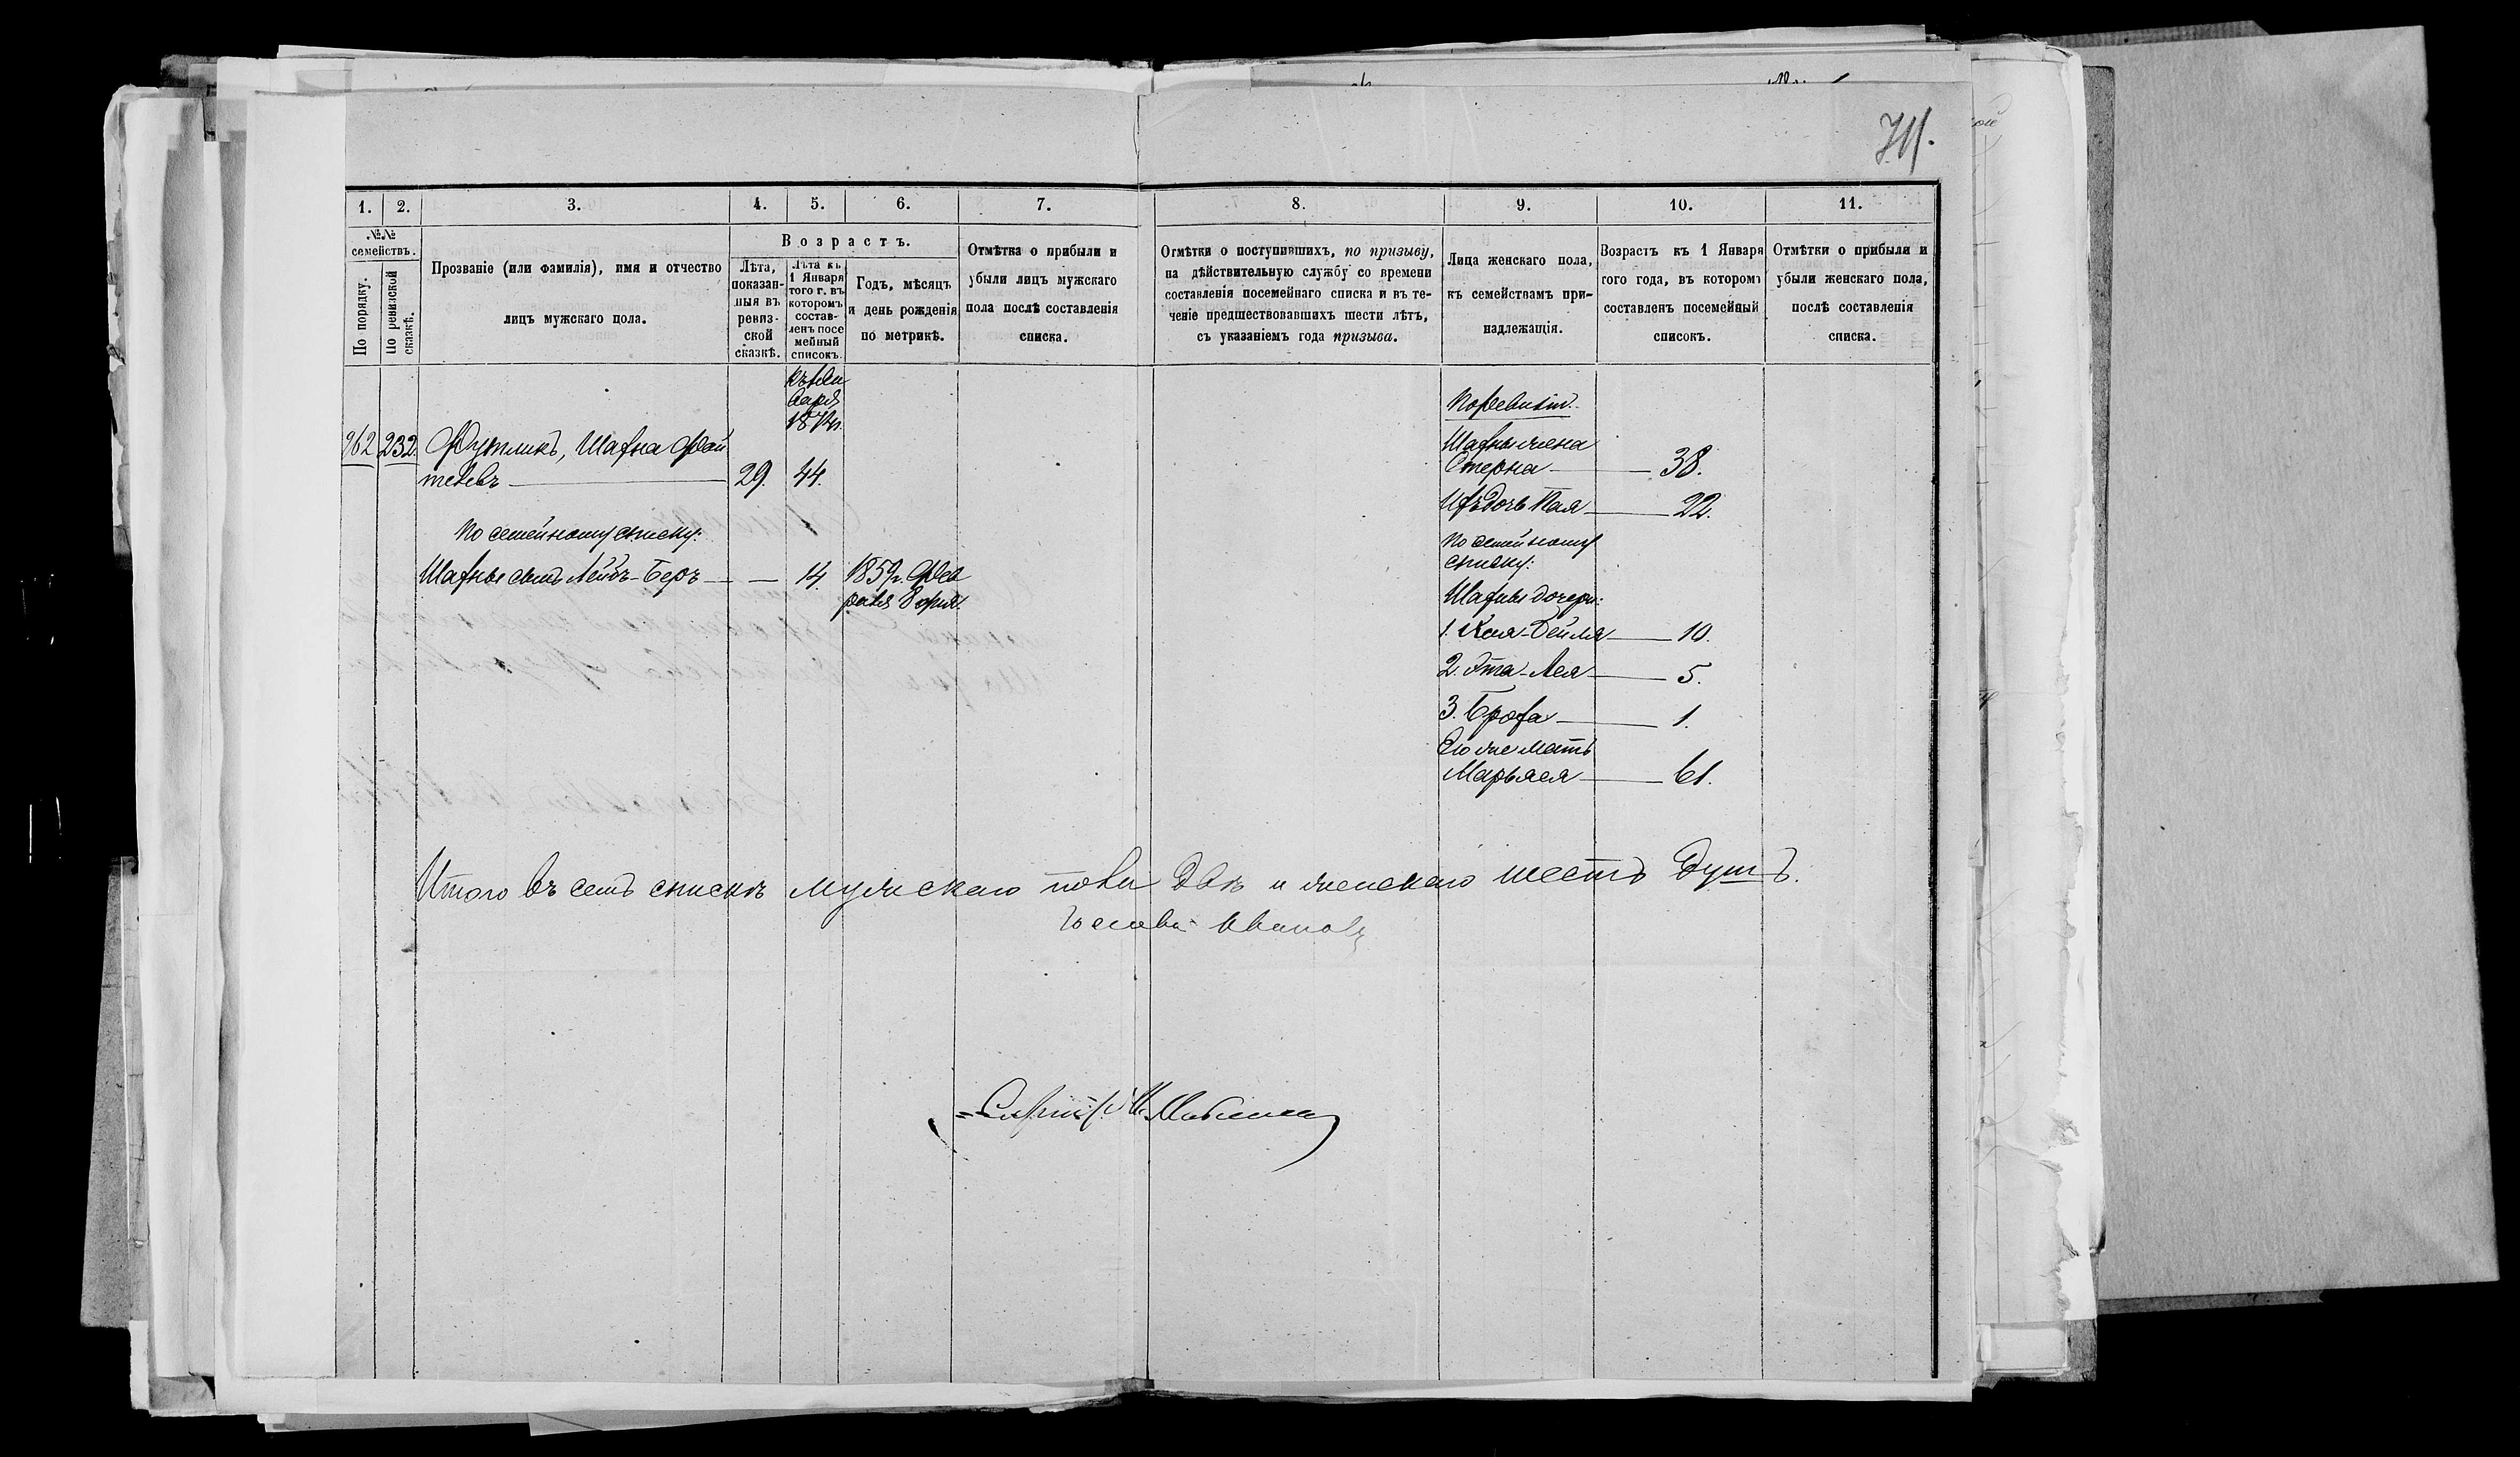 711.
1. 2. 3. 4. 5. 6. 7. 8. 9. 10. 11.
№№ семействъ.
По порядку.
По ревизской сказкѣ.
Прозваніе (или фамилія), имя и отчество
лицъ мужскаго пола.
Возрастъ.
Лѣта,
показан-
ныя въ
ревиз-
ской
сказкѣ.
Лѣта къ
1 Января
того г. въ
которомъ
состав-
ленъ посе
мейный
списокъ.
Годъ, мѣсяцъ
и день рожденія
по метрикѣ.
Отмѣтка о прибыли и
убыли лицъ мужскаго
пола послѣ составленія
списка.
Отмѣтки о поступившихъ, по призыву,
на дѣйствительную службу со времени
составленія посемейнаго списка и въ те-
ченіе предшествовавшихъ шести лѣтъ,
съ указаніемъ года призыва.
Лица женскаго пола,
къ семействамъ при-
надлежащія.
Возрастъ къ 1 Января
того года, въ которомъ
составленъ посемейный
списокъ.
Отмѣтки о прибыли и
убыли женскаго пола,
послѣ составленія
списка.
къ Ян
варя
962 232 Футликъ, Шафна Фай
телевъ 29. 44.
По семейному списку:
Шафны сынъ Лейбъ-Беръ — 14. 1859 г. Фев
раля 8 дня.
По ревизіи.
Шафны жена
Стерна 38.
Ихъ дочь Пая 22.
По семейному
списку:
Шафны дочери:
1. Хая-Бейля 10.
2. Эта-Лея 5.
3. Броха 1.
Его же мать
Марьяся 61.
Итого въ семъ спискѣ мужскаго пола двѣ и женскаго шесть душъ.